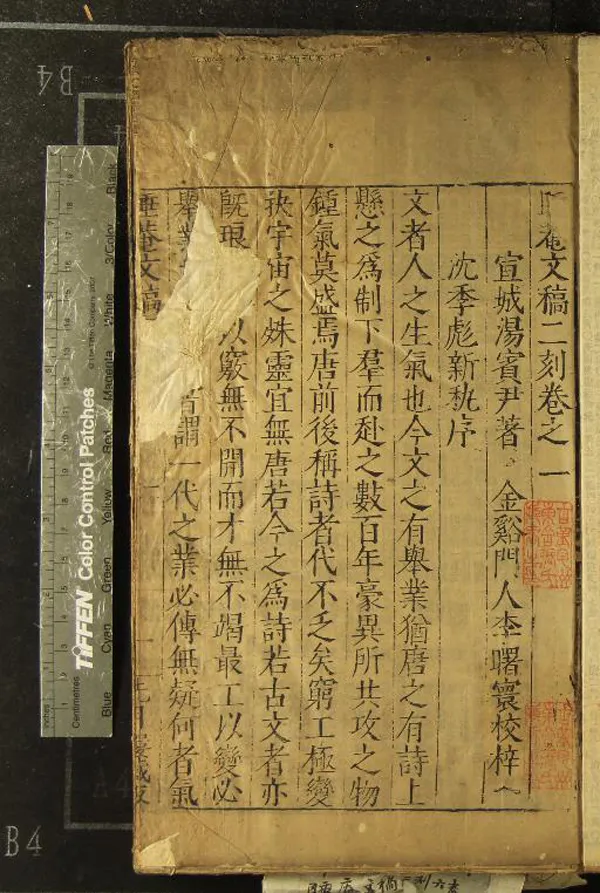 菴文稿二刻卷之一
宣城湯賓尹著 金谿門人李曙寰校梓
沈季彪新執序
文者人之生氣也今文之有舉業猶唐之有詩上
懸之為制下羣而赴之數百年豪異所共攻之物
鍾氣莫盛焉唐前後稱詩者代不乏矣窮工極變
抉宇宙之姝靈宜無唐若今之為詩若古文者亦
旣琅 以竅無不開而才無不竭最工以變必
舉業 者謂一代之業必傳無疑何者氣
睡菴文稿 一
B4
B4
A4
TIFFEN Color Control Patches
© The Tiffen Company, 2007
Inches
Centimetres
Blue
Cyan
Green
Yellow
Red
Magenta
White
3/Color
Black